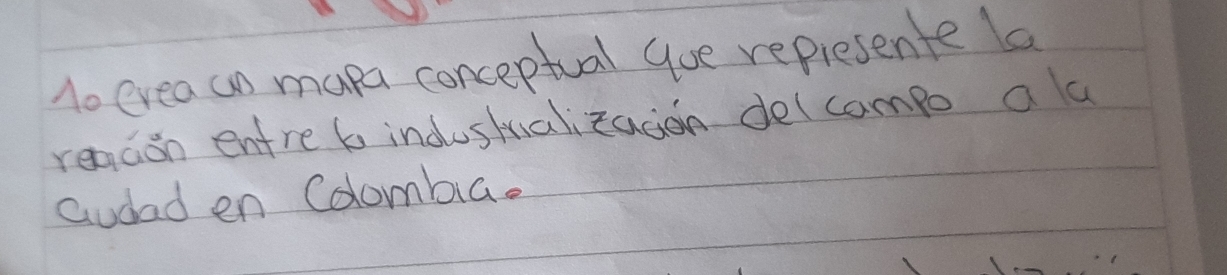 1o Crea un mapa conceptual que represente la
reación entre la industrialización del campo a la
ciudad en Colombia.